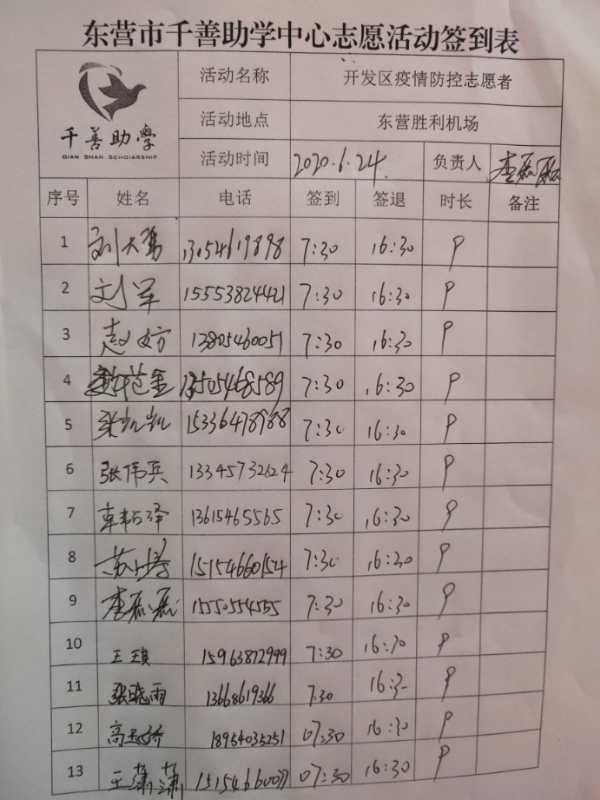 东营市千善助学中心志愿活动签到表
千善助学
QIAN SHAN SCHOLARSHIP
活动名称 开发区疫情防控志愿者
活动地点 东营胜利机场
活动时间 2020.6.24 负责人 李磊磊
序号 姓名 电话 签到 签退 时长 备注
1 刘大勇 13054619898 7:30 16:30 9
2 刘军 15553824421 7:30 16:30 9
3 赵 13805460051 7:30 16:30 9
4 13505468589 7:30 16:30 9
5 15336478988 7:30 16:30 9
6 张伟兵 13345732624 7:30 16:30 9
7 13615465565 7:30 16:30 9
8 苏 15154660154 7:30 16:30 9
9 李磊磊 15550554555 7:30 16:30 9
10 王 15963872999 7:30 16:30 9
11 张晓雨 13668619366 7:30 16:30 9
12 高 18954035251 07:30 16:30 9
13 王潇潇 07:30 16:30 9